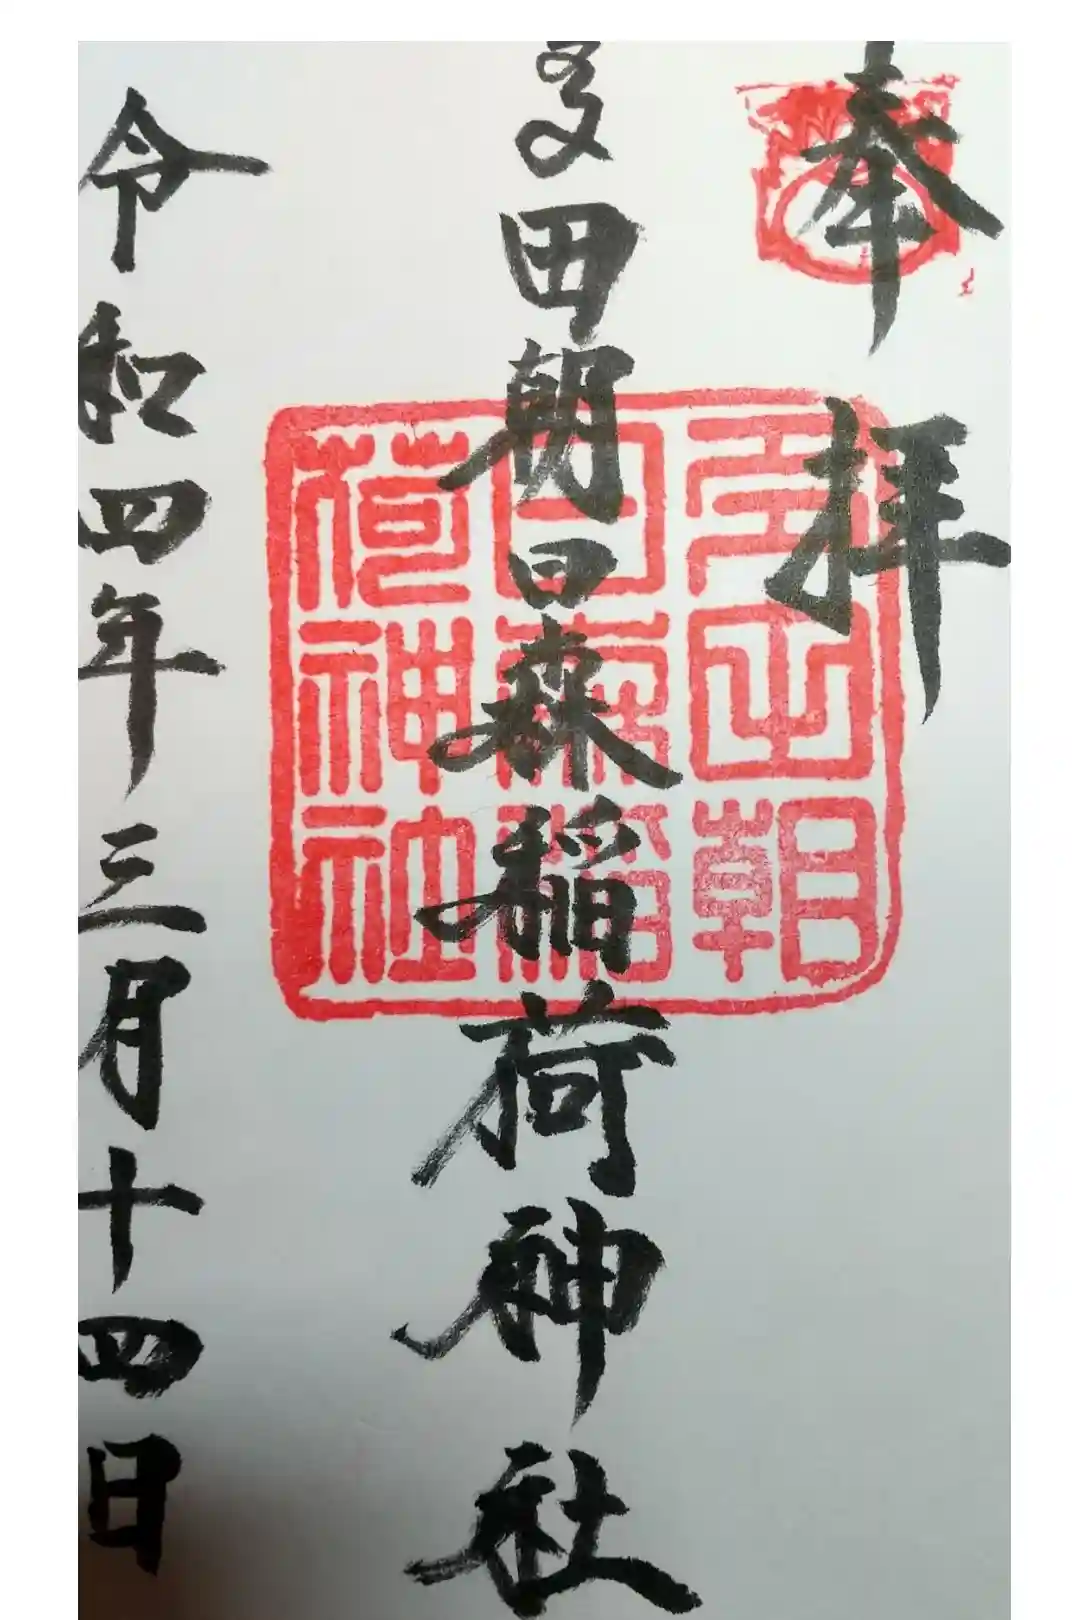 奉拝
多田朝日森稲荷神社
令和四年三月十四日
多田朝
日森稲
荷神社